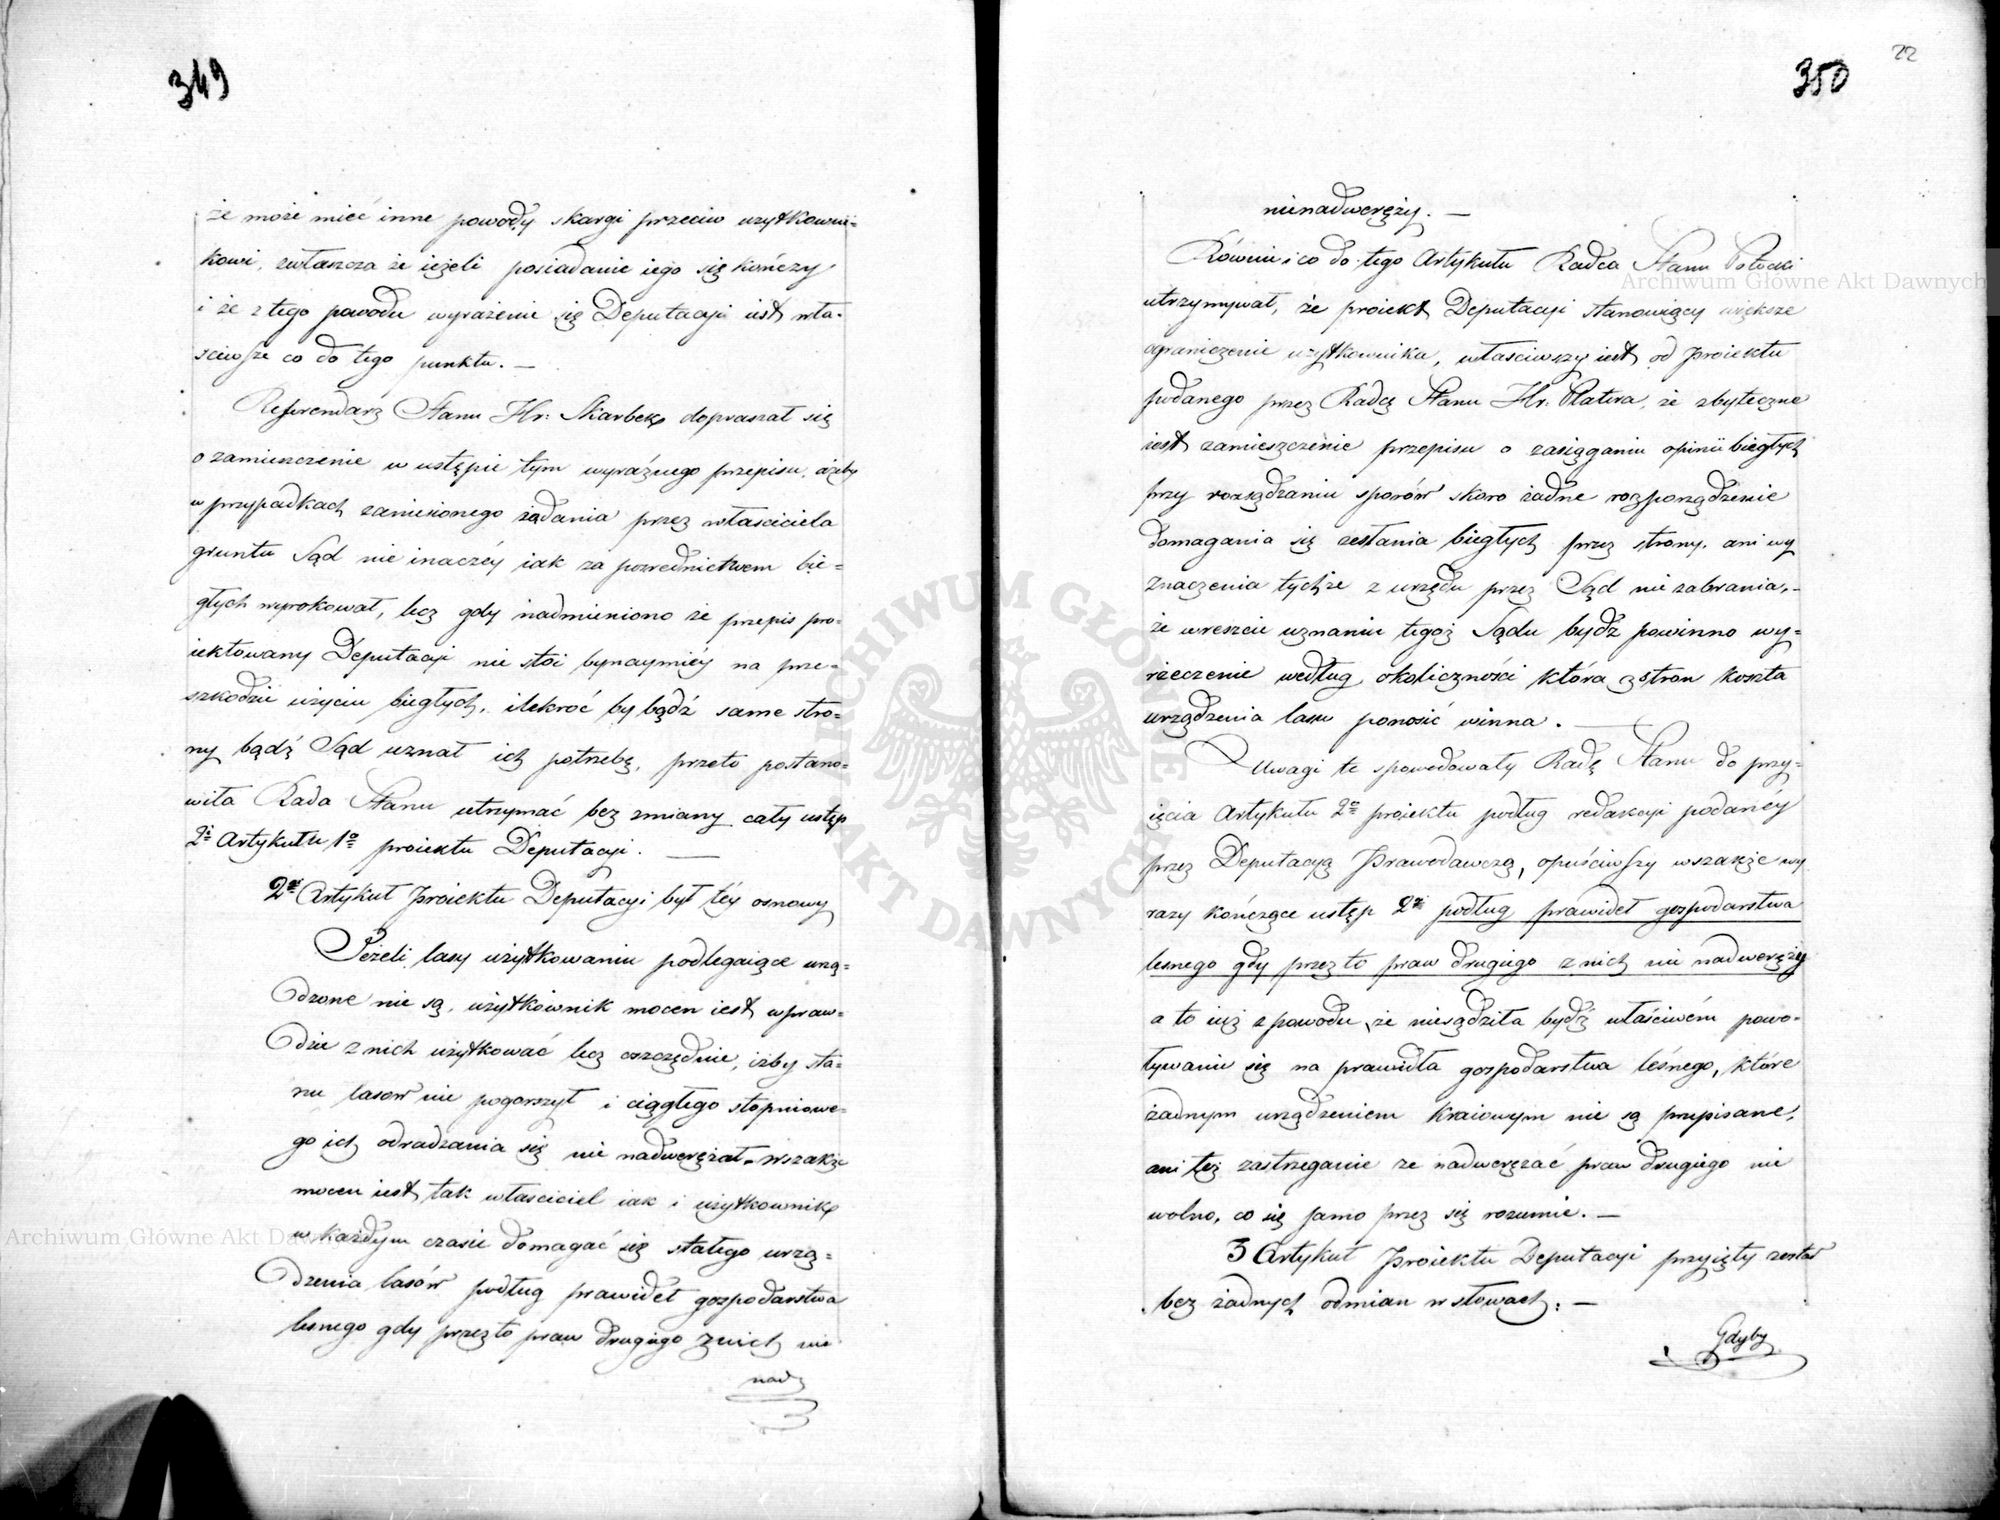 349
że może mieć inne powody skargi przeciw użytkowni=
kowi, zwłaszcza że ieżeli posiadanie iego się kończy
i że z tego powodu wyrażenie się Deputacyi iest wła-
sciwsze co do tego punktu. —
Referendarz Stanu Hr: Skarbek dopraszał się
o zamieszczenie w ustępie tym wyraźnego przepisu, ażeby
w przypadkach zaniesionego żądania przez właściciela
gruntu Sąd nie inaczéy iak za pośrednictwem bie=
głych wyrokował, lecz gdy nadmieniono że przepis pro=
iektowany Deputacyi nie stoi bynaymniéy na prze=
szkodzie użyciu biegłych, ilekroć by bądź same stro=
ny bądź Sąd uznał ich potrzebę, przeto postano=
wiła Rada Stanu utrzymać bez zmiany cały ustęp
2i Artykułu 1o proiektu Deputacyi. —
2gi Artykuł Proiektu Deputacyi był téy osnowy
Jeżeli lasy użytkowaniu podlegaiące urzą=
dzone nie są, użytkownik mocen iest wpraw=
dzie z nich użytkować lecz oszczędnie, iżby sta=
nu lasów nie pogorszył i ciągłego stopniowe=
go ich odradzania się nie nadwerężał. wszakże
mocen iest tak właściciel iak i użytkownik
w każdym czasie domagać się stałego urzą=
dzenia lasów podług prawideł gospodarstwa
lesnego gdy przez to praw drugiego z nich nie
nad
22
350
nienadweręży. —
Równie i co do tego Artykułu Radca Stanu Potocki
utrzymywał, że proiekt Deputacyi stanowiący większe
ograniczenie użytkownika, właściwszy iest od Proiektu
podanego przez Radcę Stanu Hr. Platera, że zbyteczne
iest zamieszczenie przepisu o zasiąganiu opinii biegłych
przy rozsądzaniu sporów skoro żadne rozporządzenie
domagania się zesłania biegłych przez strony, ani wy
znaczenia tychże z urzędu przez Sąd nie zabrania,-
że wreszcie uznaniu tegoż Sądu bydź powinno wy=
rzeczenie według okoliczności która z stron koszta
urządzenia lasu ponosić winna. —
Uwagi te spowodowały Radę Stanu do przy=
ięcia Artykułu 2o proiektu podług redakcyi podanéy
przez Deputacyą Prawodawczą, opuściwszy wszakże wy
razy kończące ustęp 2gi podług prawideł gospodarstwa
lesnego gdy przez to praw drugiego z nich nie nadweręży
a to iuż z powodu, że niesądziła bydź właściwém powo-
ływanie się na prawidła gospodarstwa leśnego, które
żadnym urządzeniem kraiowym nie są przepisane,
ani też zastrzeganie że nadwerężać praw drugiego nie
wolno, co się samo przez się rozumie. —
3 Artykuł Proiektu Deputacyi przyięty został
bez żadnych odmian w słowach: —
Gdyby
Archiwum Główne Akt Dawnych
Archiwum Główne Akt Dawnych
ARCHIWUM GŁÓWNE AKT DAWNYCH